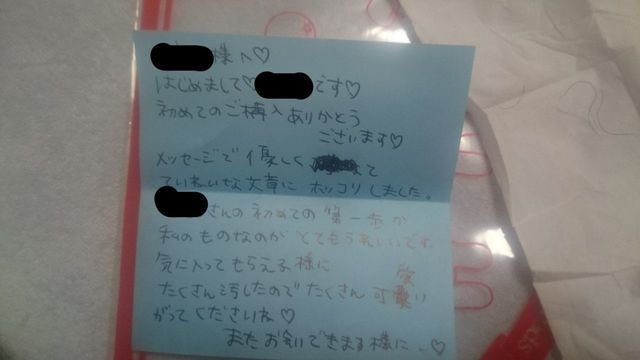 様へ♡
はじめまして♡ です♡
初めてのご購入ありがとう
ございます♡
メッセージで優しく て
ていねいな文章に ホッコリしました。
さんの初めての第一歩が
私のものなのか とてもうれしいです
気に入ってもらえる様に
たくさん汚したので たくさん可愛い
がってくださいね♡
またお会いできます様に..♡